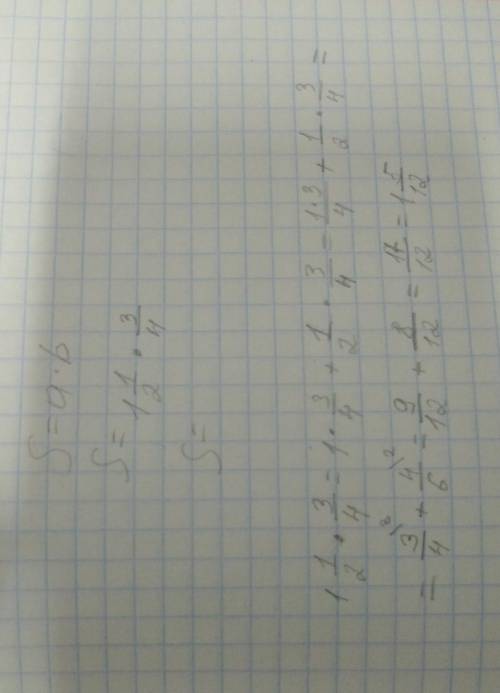 S = a · b
S = 1 1/2 · 3/4
S =
1 1/2 · 3/4 = 1 · 3/4 + 1/2 · 3/4 = 1·3/4 + 1/2 · 3/4 =
= 3/4 + 4/6 = 9/12 + 8/12 = 17/12 = 1 5/12